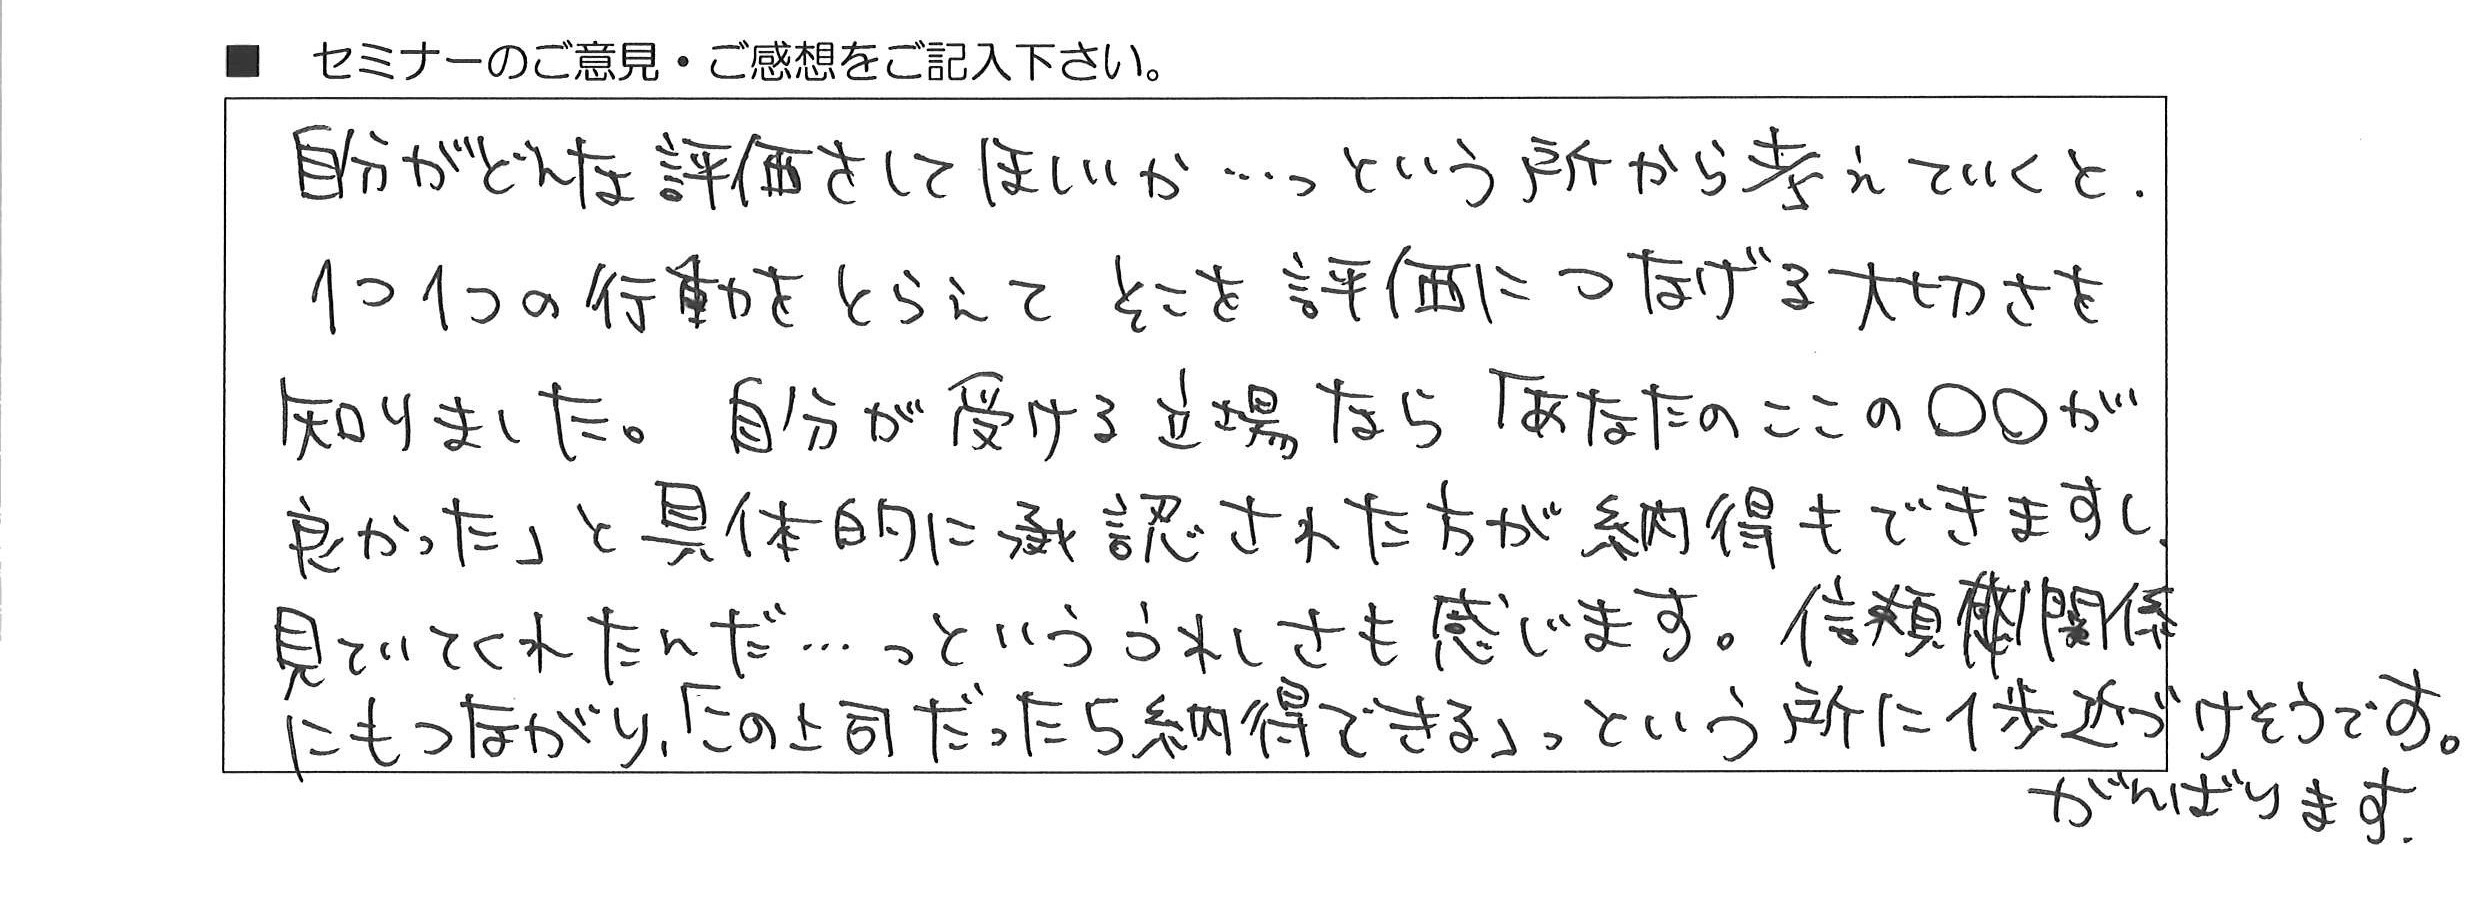 ■ セミナーのご意見・ご感想をご記入下さい。
自分がどんな評価をしてほしいか…っという所から考えていくと、
1つ1つの行動をとらえてそこを評価につなげる大切さを
知りました。自分が受ける立場なら「あなたのここの〇〇が
良かった」と具体的に承認された方が納得もできますし、
見ていてくれたんだ…っといううれしさも感じます。信頼関係
にもつながり、「この上司だったら納得できる」っという所に1歩近づけそうです。
がんばります。